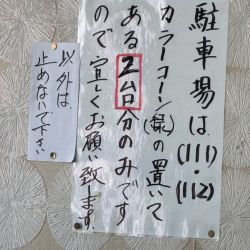 駐車場は(111)・(112)
カラーコーン(緑)の置いて
ある2台分のみです
ので宜しくお願い致します.
以外は、
止めないで下さい